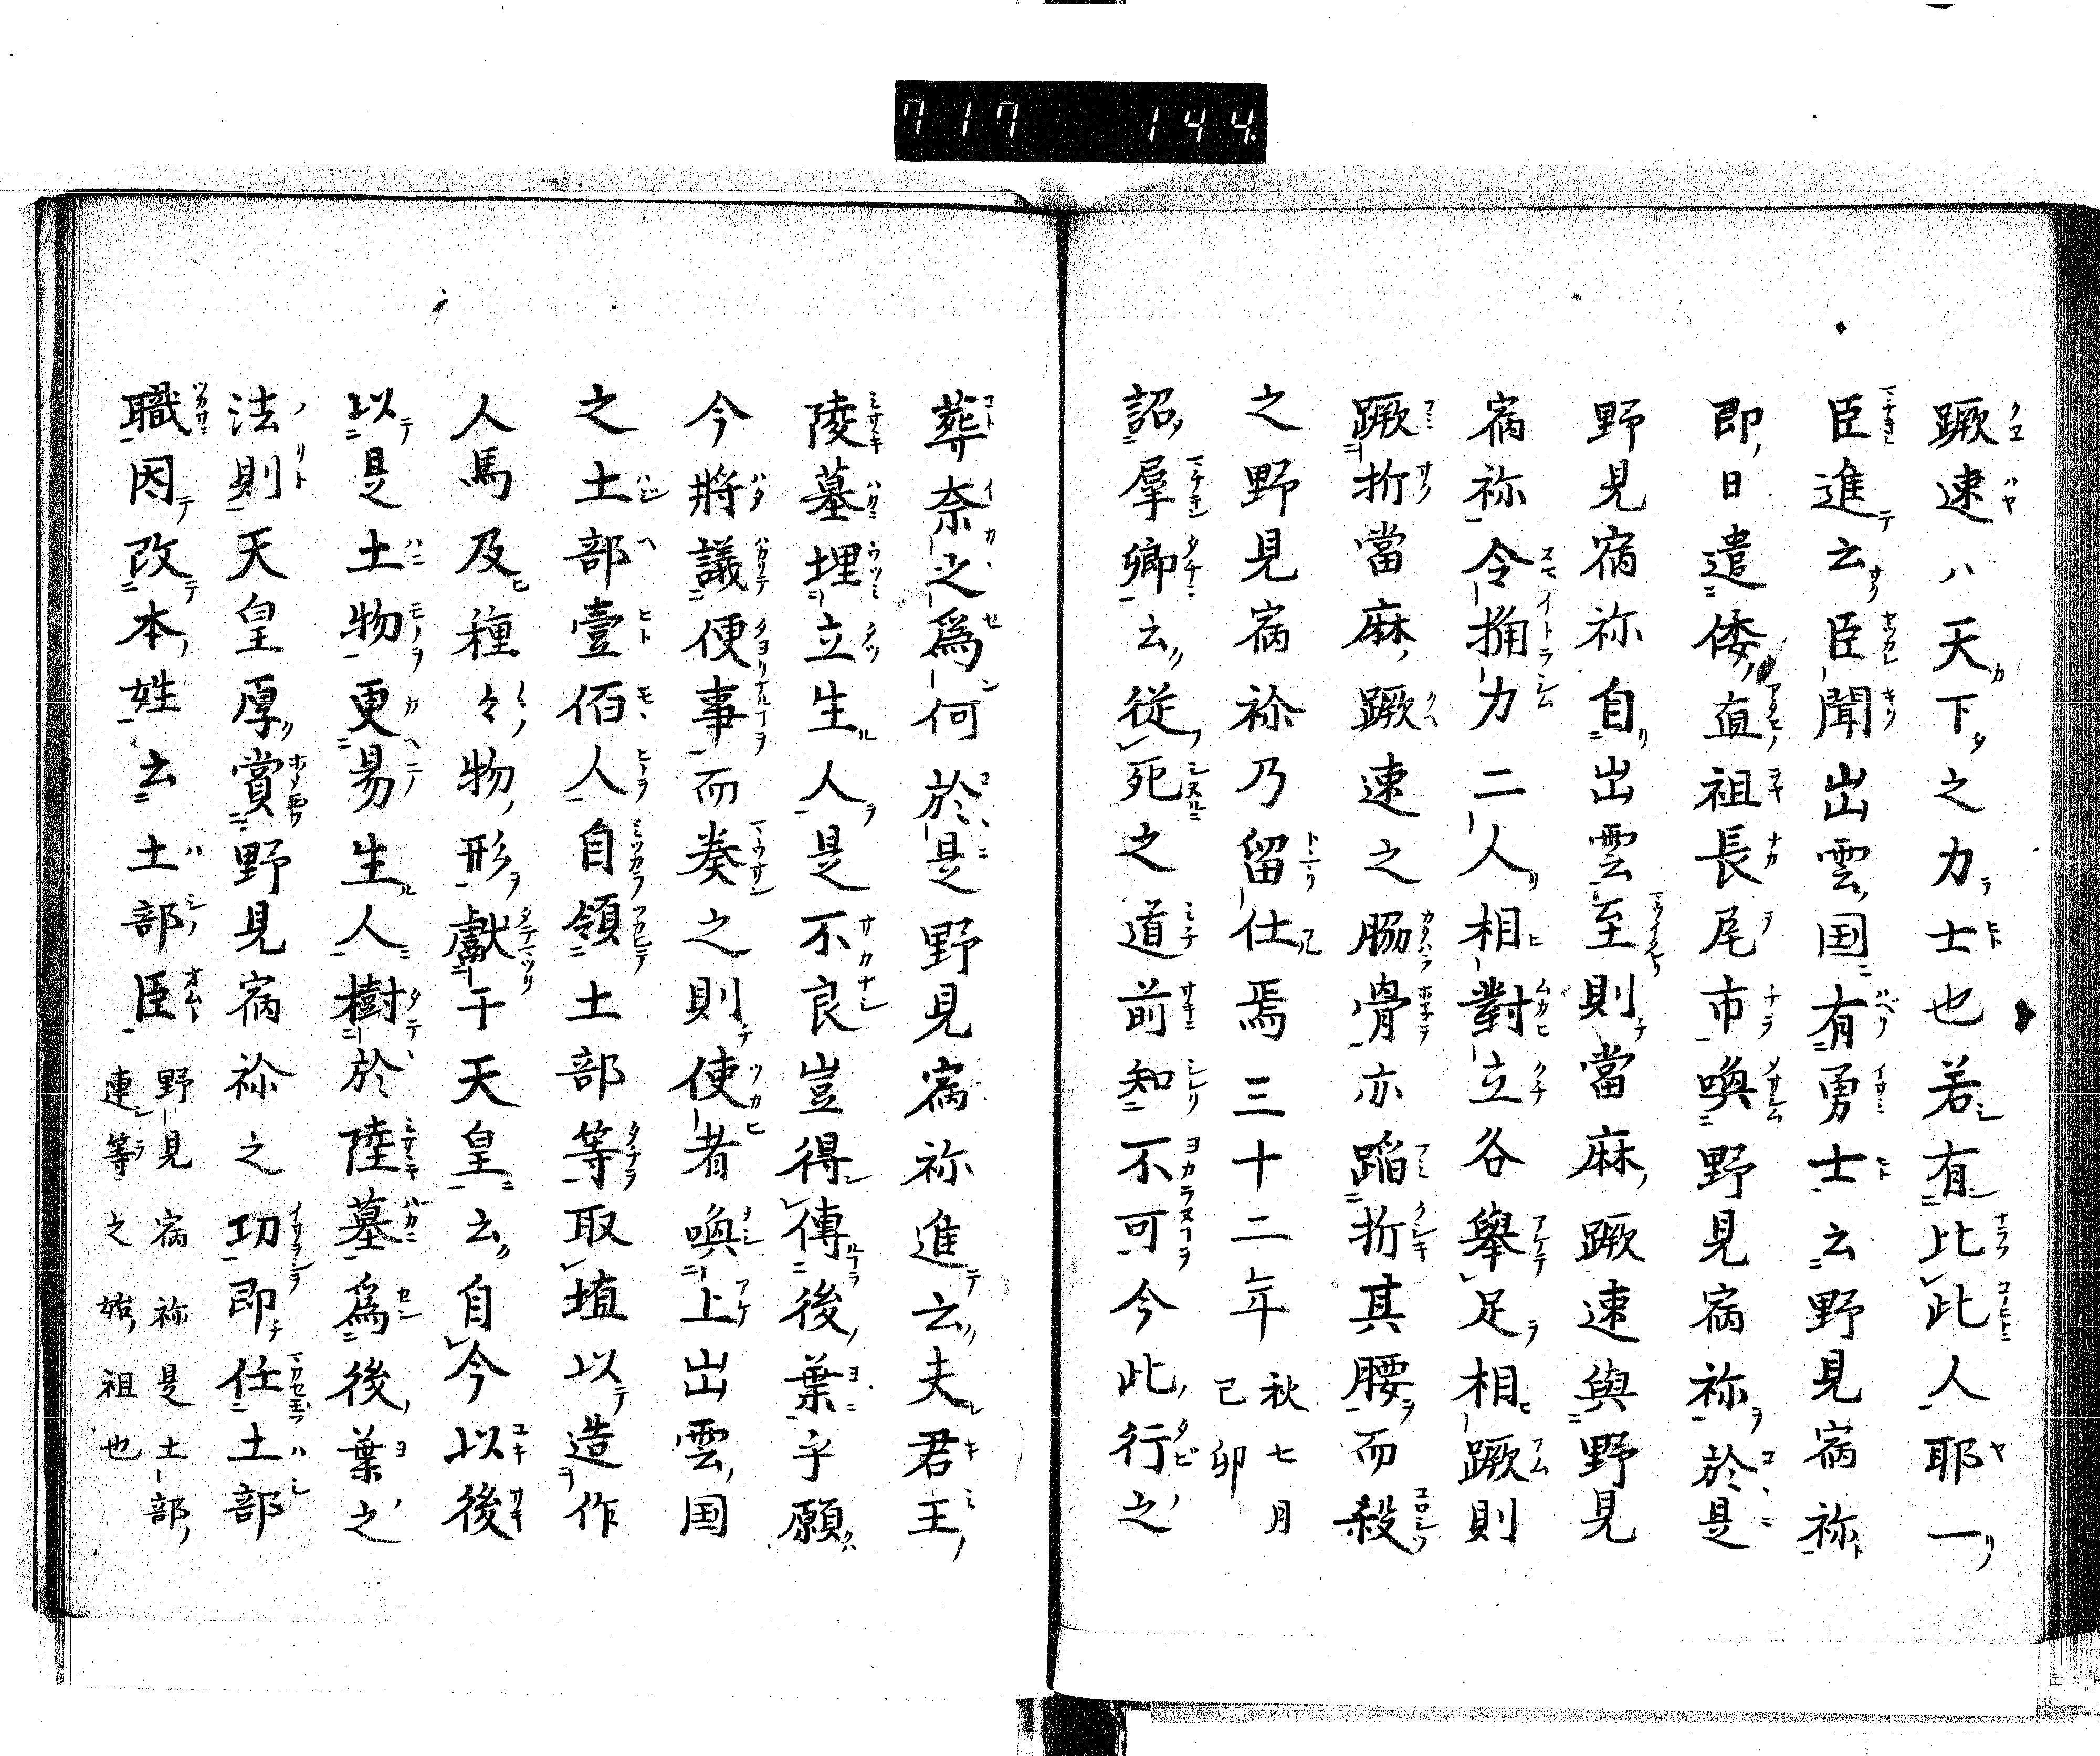 717 144
蹶速ハ天下之力士也若有比此人耶一
臣進云臣聞出雲国有勇士云野見宿祢
即日遣倭直祖長尾市喚野見宿祢於是
野見宿祢自出雲至則當麻蹶速與野見
宿祢令捔力二人相對立各舉足相蹶則
蹶折當麻蹶速之脇骨亦蹈折其腰而殺
之野見宿祢乃留仕焉三十二年秋七月己卯
詔羣卿云從死之道前知不可今此行之
葬奈之為何於是野見宿祢進云夫君王
陵墓埋立生人是不良豈得傳後葉乎願
今將議便事而奏之則使者喚上出雲国
之土部壹佰人自領土部等取埴以造作
人馬及種々物形獻于天皇云自今以後
以是土物更易生人樹於陸墓為後葉之
法則天皇厚賞野見宿祢之功即任土部
職因改本姓云土部臣野見宿祢是土部連等之始祖也